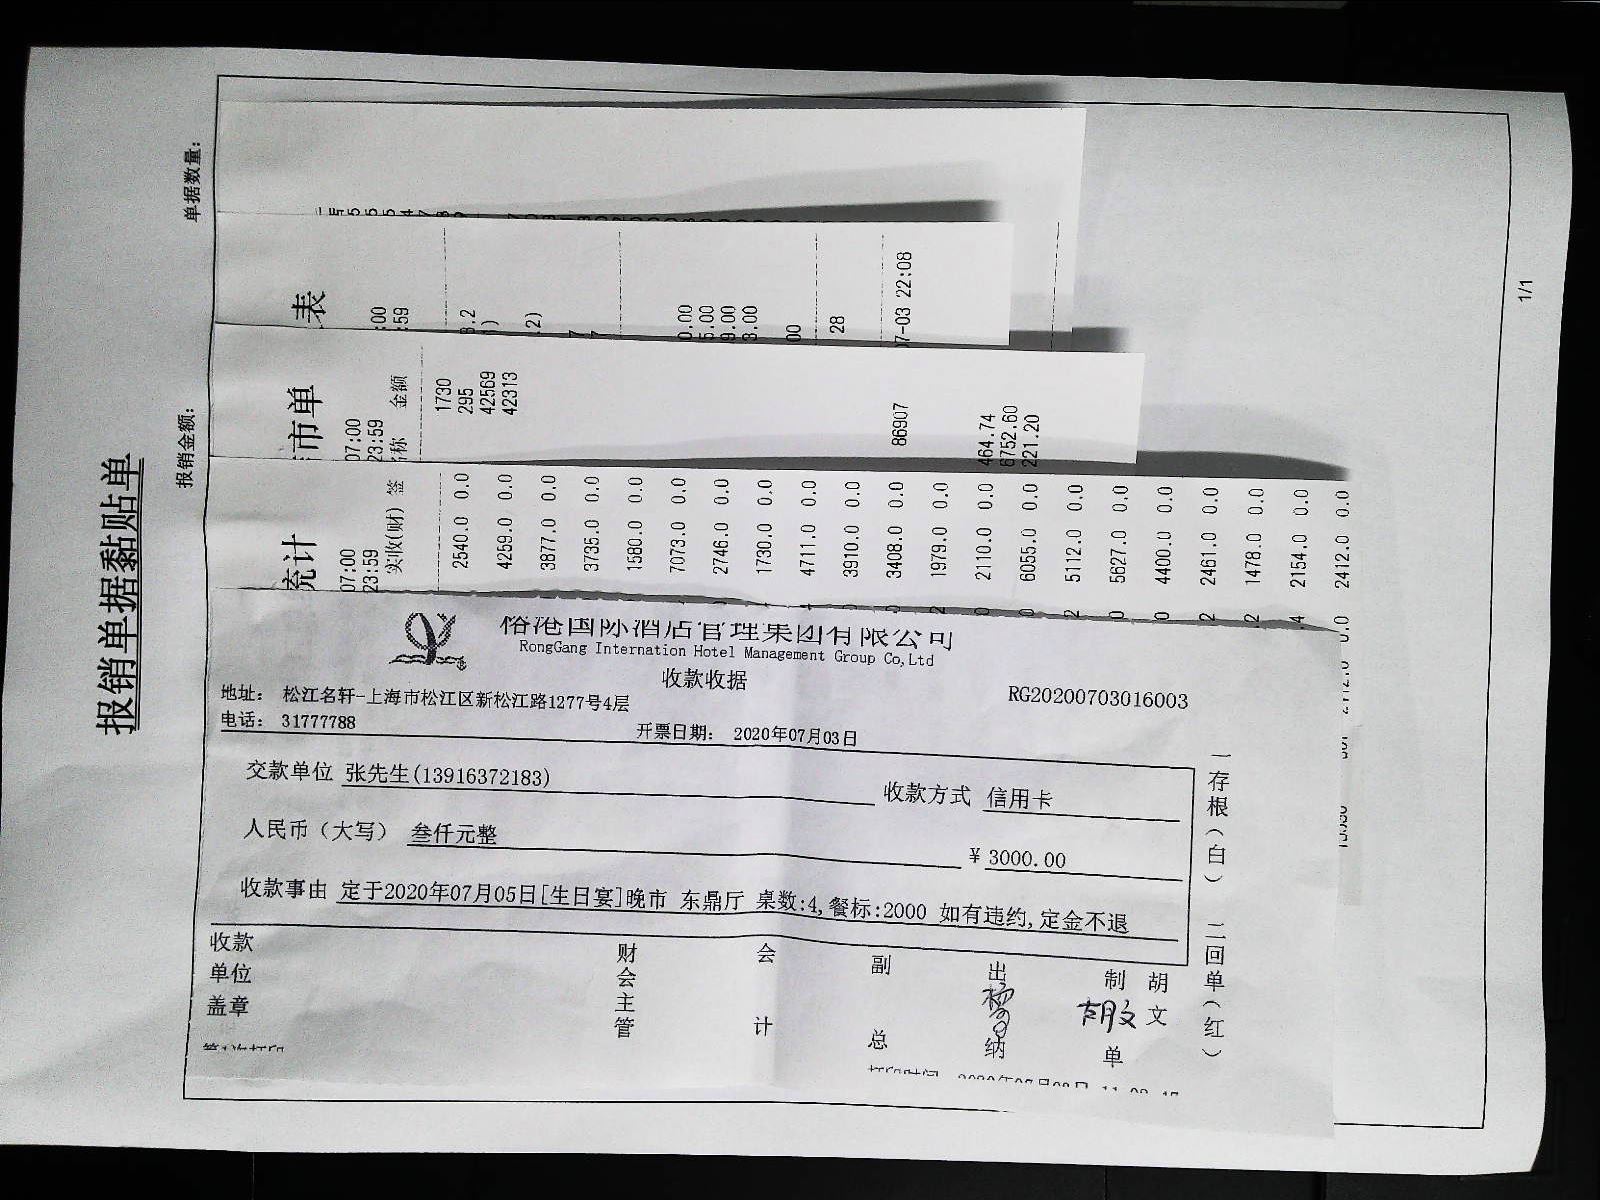 报销单据黏贴单
报销金额:
单据数量:
1/1
表
:00
:59
0.00
5.00
9.00
3.00
00
28
07-03 22:08
市单
07:00
23:59
称 金额
1730
295
42569
42313
86907
464.74
6752.60
221.20
统计
07:00
23:59
实收(财) 签
2540.0 0.0
4259.0 0.0
3877.0 0.0
3735.0 0.0
1580.0 0.0
7073.0 0.0
2746.0 0.0
1730.0 0.0
4711.0 0.0
3910.0 0.0
3408.0 0.0
1979.0 0.0
2110.0 0.0
6055.0 0.0
5112.0 0.0
5627.0 0.0
4400.0 0.0
2461.0 0.0
1478.0 0.0
2154.0 0.0
2412.0 0.0
港国际酒店管理集团有限公司
RongGang Internation Hotel Management Group Co,Ltd
收款收据
地址: 松江名轩-上海市松江区新松江路1277号4层
RG20200703016003
电话: 31777788
开票日期: 2020年07月03日
交款单位 张先生(13916372183)
收款方式 信用卡
人民币(大写) 叁仟元整
¥ 3000.00
收款事由 定于2020年07月05日[生日宴]晚市 东鼎厅 桌数:4,餐标:2000 如有违约,定金不退
一存根(白) 二回单(红)
收款单位盖章
财会主管
会计
副总
出纳
制单
胡文
胡文